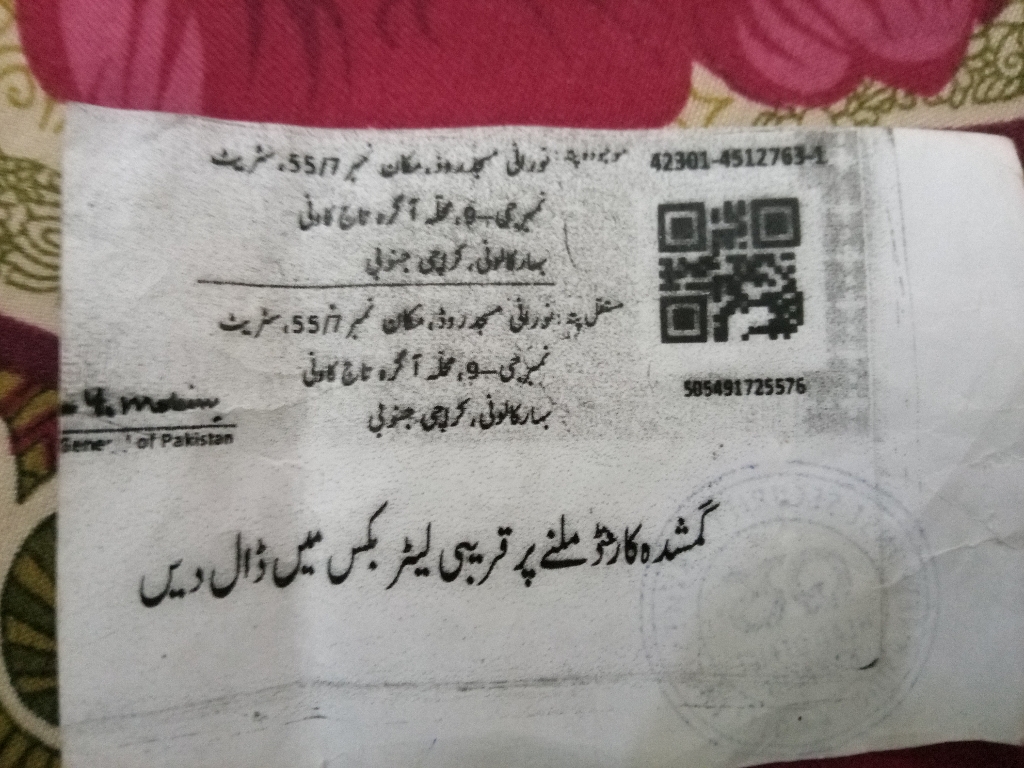 42301-4512763-1
موجودہ پتہ: نورانی مسجد روڈ، مکان نمبر 55/7، سٹریٹ
نمبر جی-9، محلہ آگرہ تاج کالونی
بہار کالونی، کراچی جنوبی
مستقل پتہ: نورانی مسجد روڈ، مکان نمبر 55/7، سٹریٹ
نمبر جی-9، محلہ آگرہ تاج کالونی
بہار کالونی، کراچی جنوبی
505491725576
General of Pakistan
گمشدہ کارڈ ملنے پر قریبی لیٹر بکس میں ڈال دیں